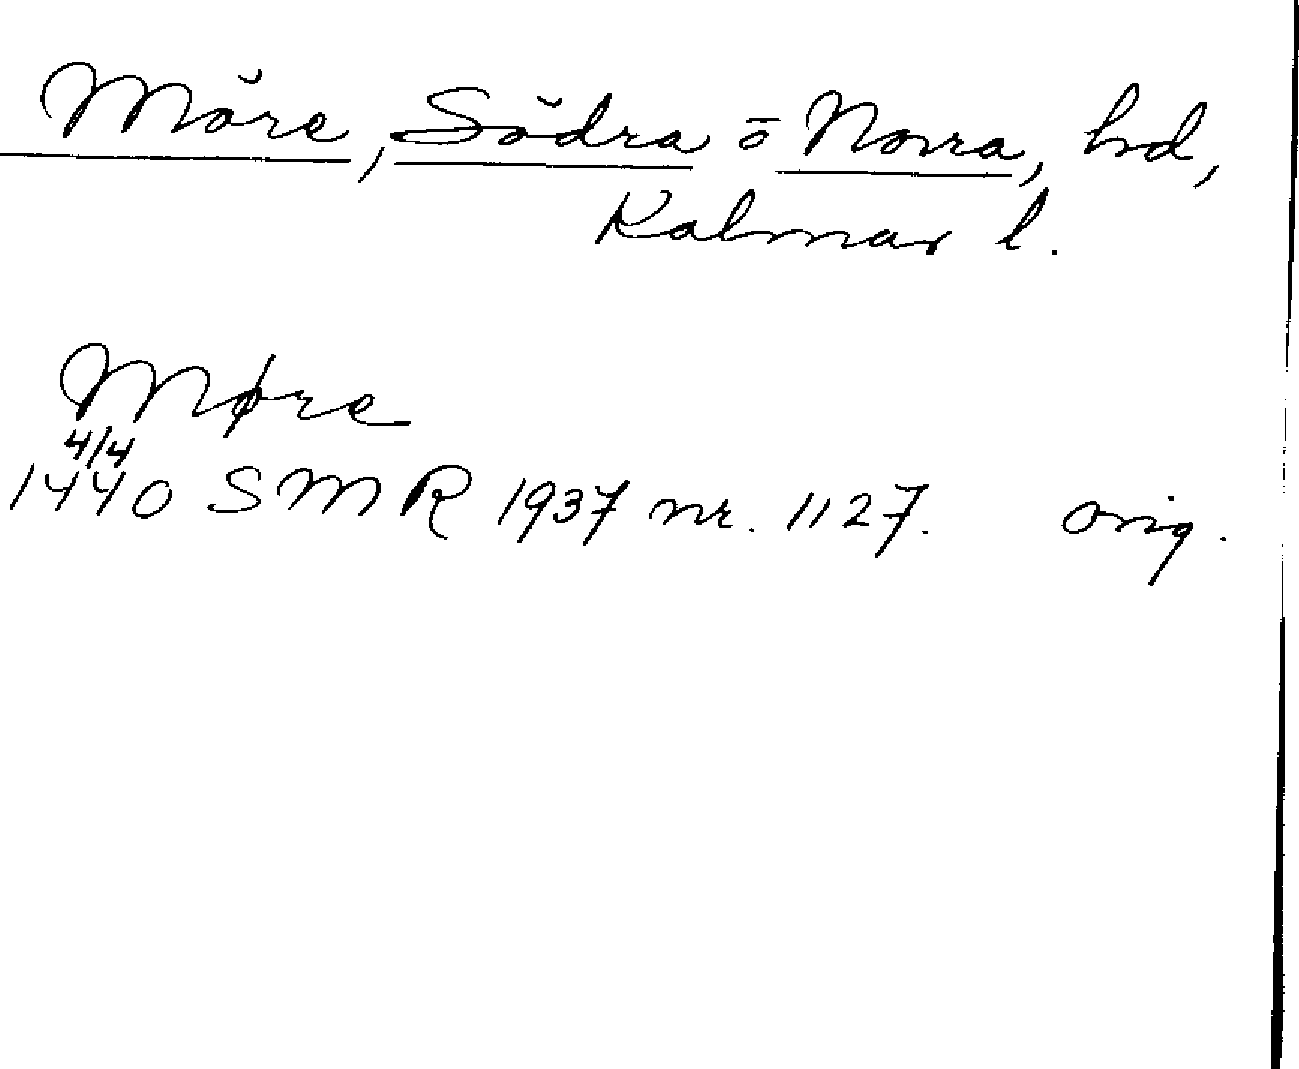 Möre, Södra o Norra, hd,
Kalmar l.
Møre
4/4
1440 SMR 1937 nr. 1127. orig.